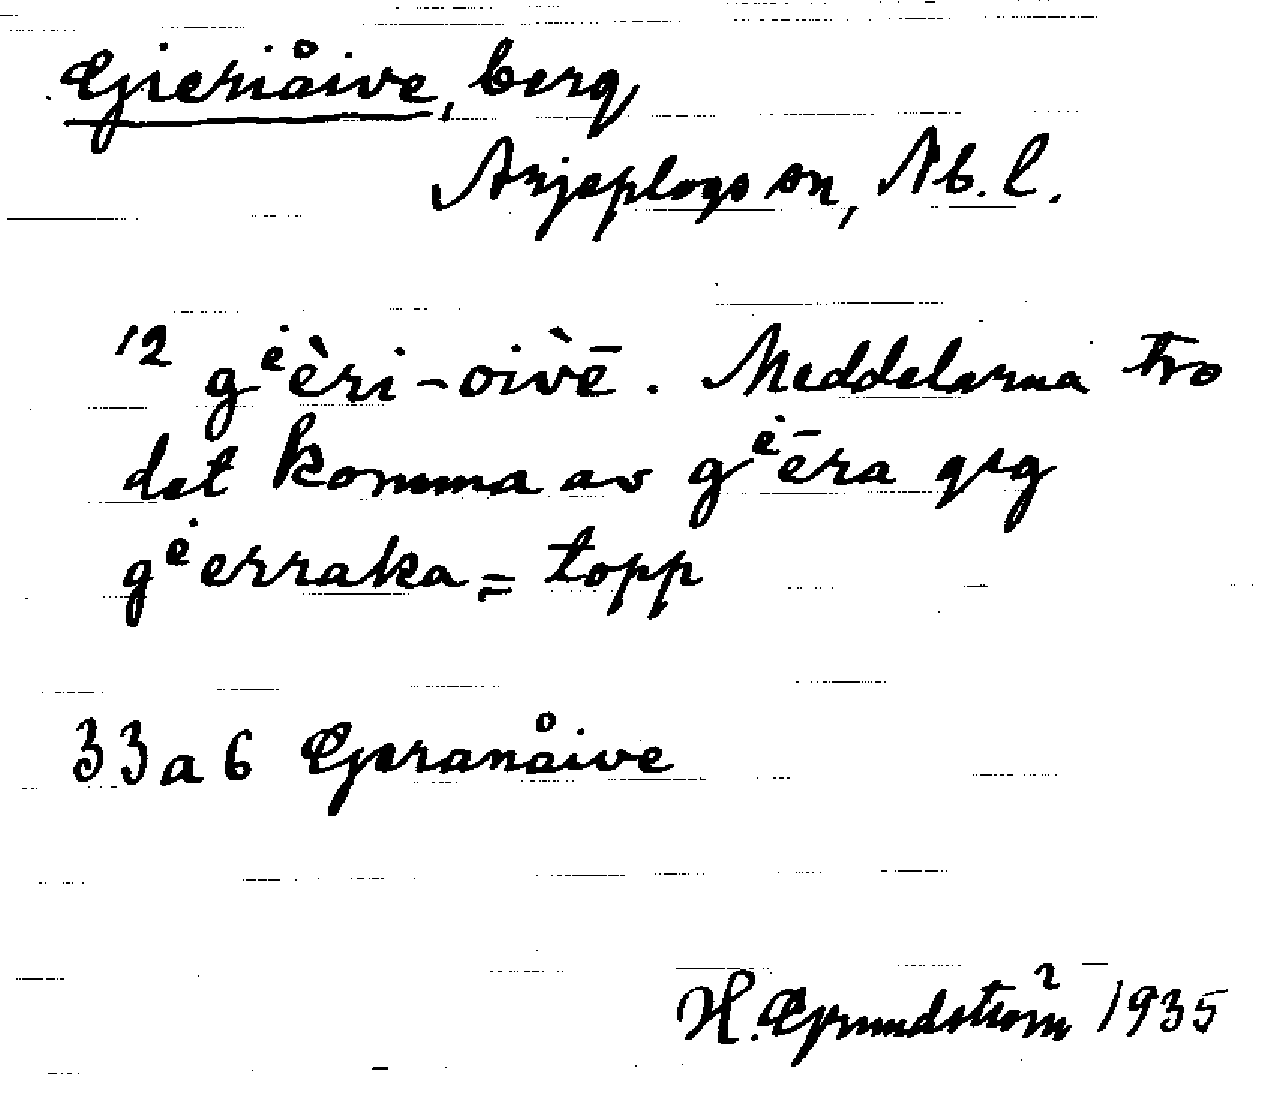 Gieriåive, berg
Arjeplogs sn, Nb. l.
12 gᵉ̇èri-oiv̀ē. Meddelarna tro
det komma av gᵉ̇ēra
gᵉ̇erraka = topp
33 a 6 Geranåive
H. Grundström 1935